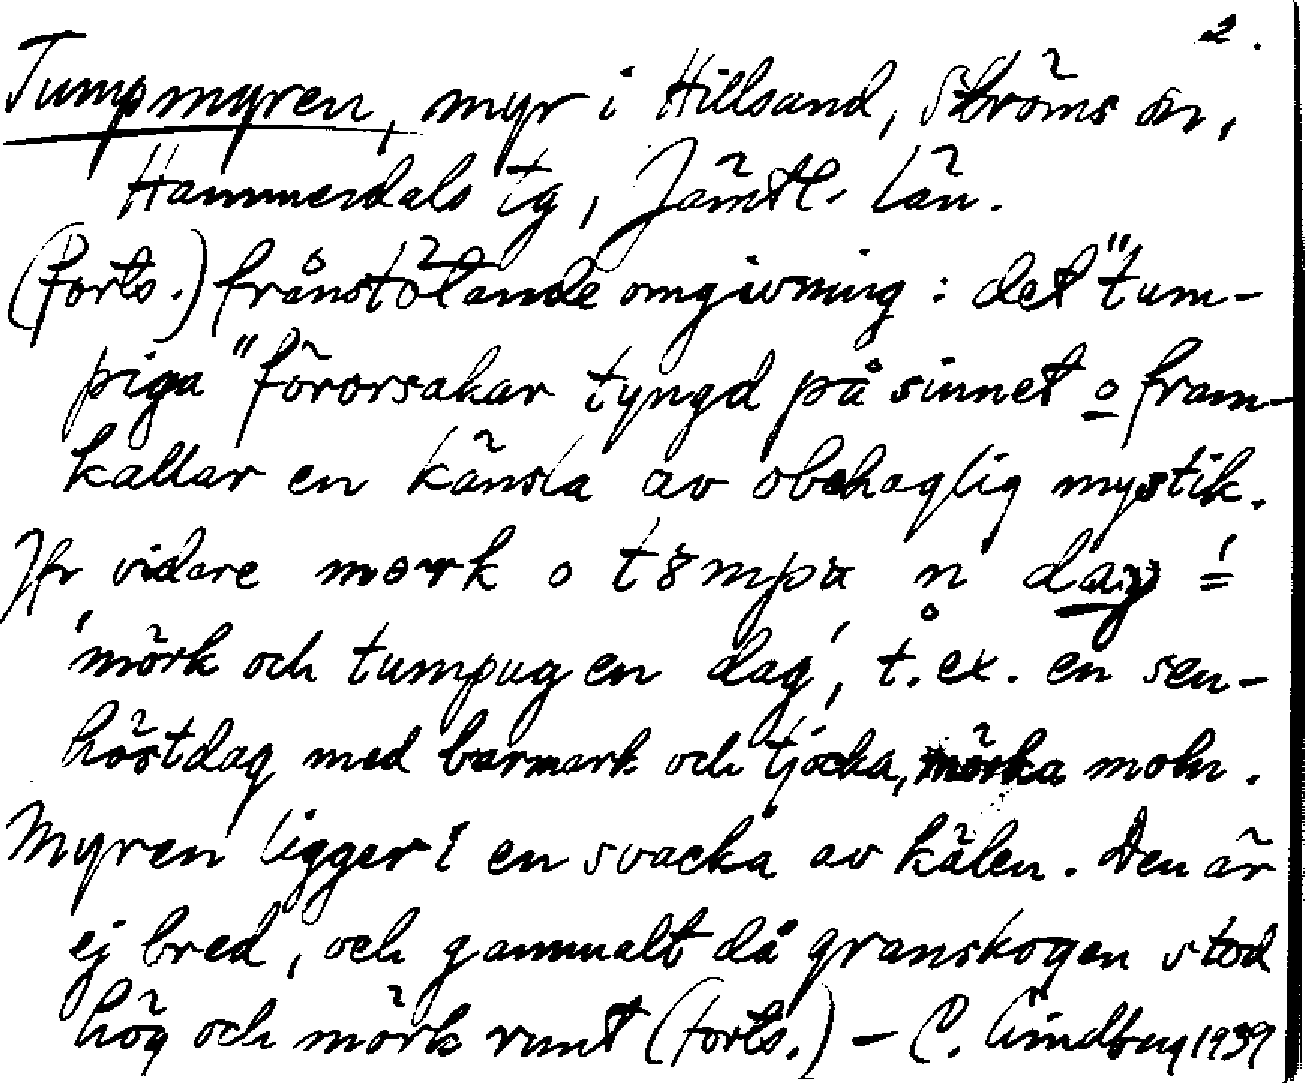 2.
Tumpmyren, myr i Hillsand, Ströms sn,
Hammerdals tg, Jämtl. län.
(Forts.) frånstötande omgivning: det "tum-
piga" förorsakar tyngd på sinnet o fram-
kallar en känsla av obehaglig mystik.
Jfr vidare mork o tömpu n dag =
'mörk och tumpug en dag', t.ex. en sen-
höstdag med barmark och tjocka, mörka moln.
Myren ligger i en svacka av kälen. Den är
ej bred, och gammalt då granskogen stod
hög och mörk runt (forts.) – C. Lindberg 1939